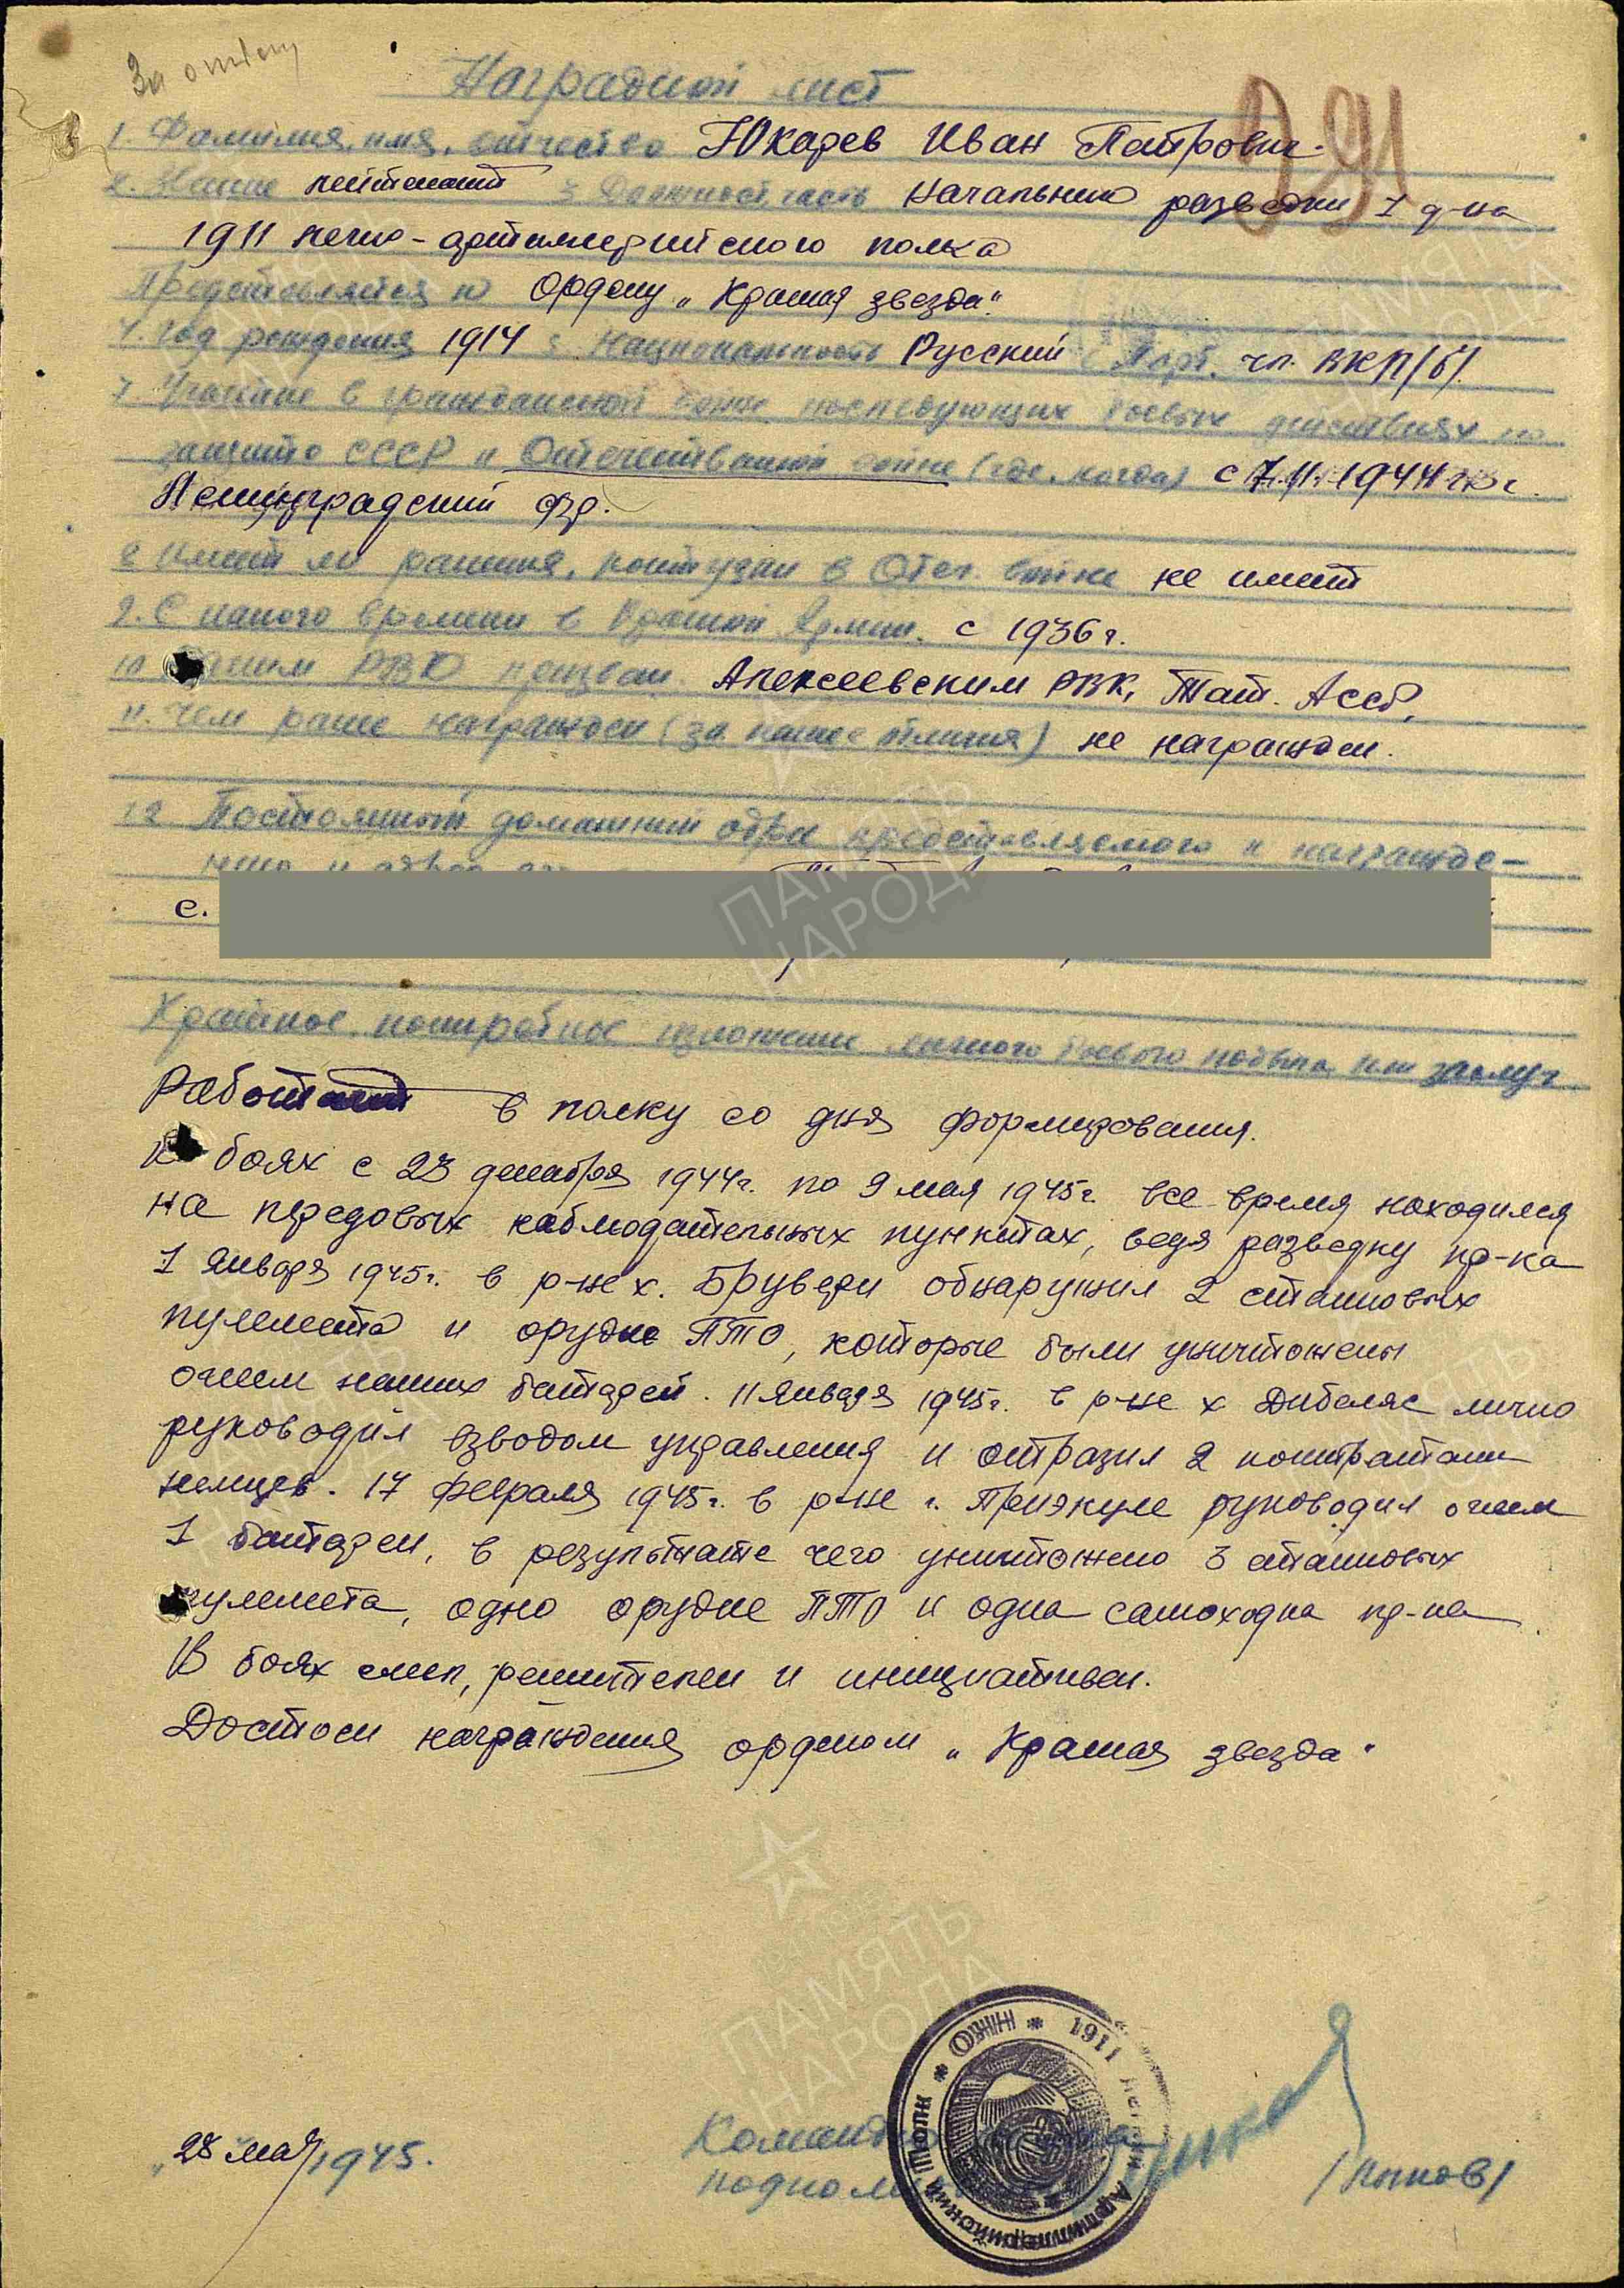 Наградной лист
1. Фамилия, имя, отчество Юкарев Иван Петрович.
2. Звание лейтенант 3 Должност, часть Начальник разведки 1 д-на
1911 легко-артиллерийского полка
Представляется к ордену „Красная звезда".
4. Год рождения 1914 5 Национальность Русский 6 Парт. чл. ВКП/б/.
7. Участие в гражданской войне последующих боевых действиях по
защите СССР и Отечественной войне (где, когда) с 1944
Ленинградский фр.
8 Имеет ли ранения, контузии в Отеч. войне не имеет
9. С какого времени в Красной Армии. с 1936 г.
10 РВК призван Алексеевским РВК, Тат. АССР,
11. Чем ранее награжден (за какие отличия) не награжден.
12 Постоянный домашний адрес представляемого к награжде-
с.
Краткое, конкретное изложение личного боевого подвига или заслуг
Работает в полку со дня формирования.
В боях с 23 декабря 1944г. по 9 мая 1945г. все время находился
на передовых наблюдательных пунктах, ведя разведку пр-ка
1 Января 1945г. в р-не х. Брувери обнаружил 2 станковых
пулемета и орудие ПТО, которые были уничтожены
огнем наших батарей. 11 Января 1945г. в р-не х Дибеляс лично
руководил взводом управления и отразил 2 контратаки
немцев. 17 Февраля 1945г. в р-не г. Приэкуле руководил огнем
1 батареи, в результате чего уничтожено 3 станковых
пулемета, одно орудие ПТО и одна самоходка пр-ка
В боях смел, решителен и инициативен.
Достоин награждения орденом „Красная звезда"
НКО * 1911 Легкий Артиллерийский Полк *
„28 мая 1945.
ПАМЯТЬ
НАРОДА